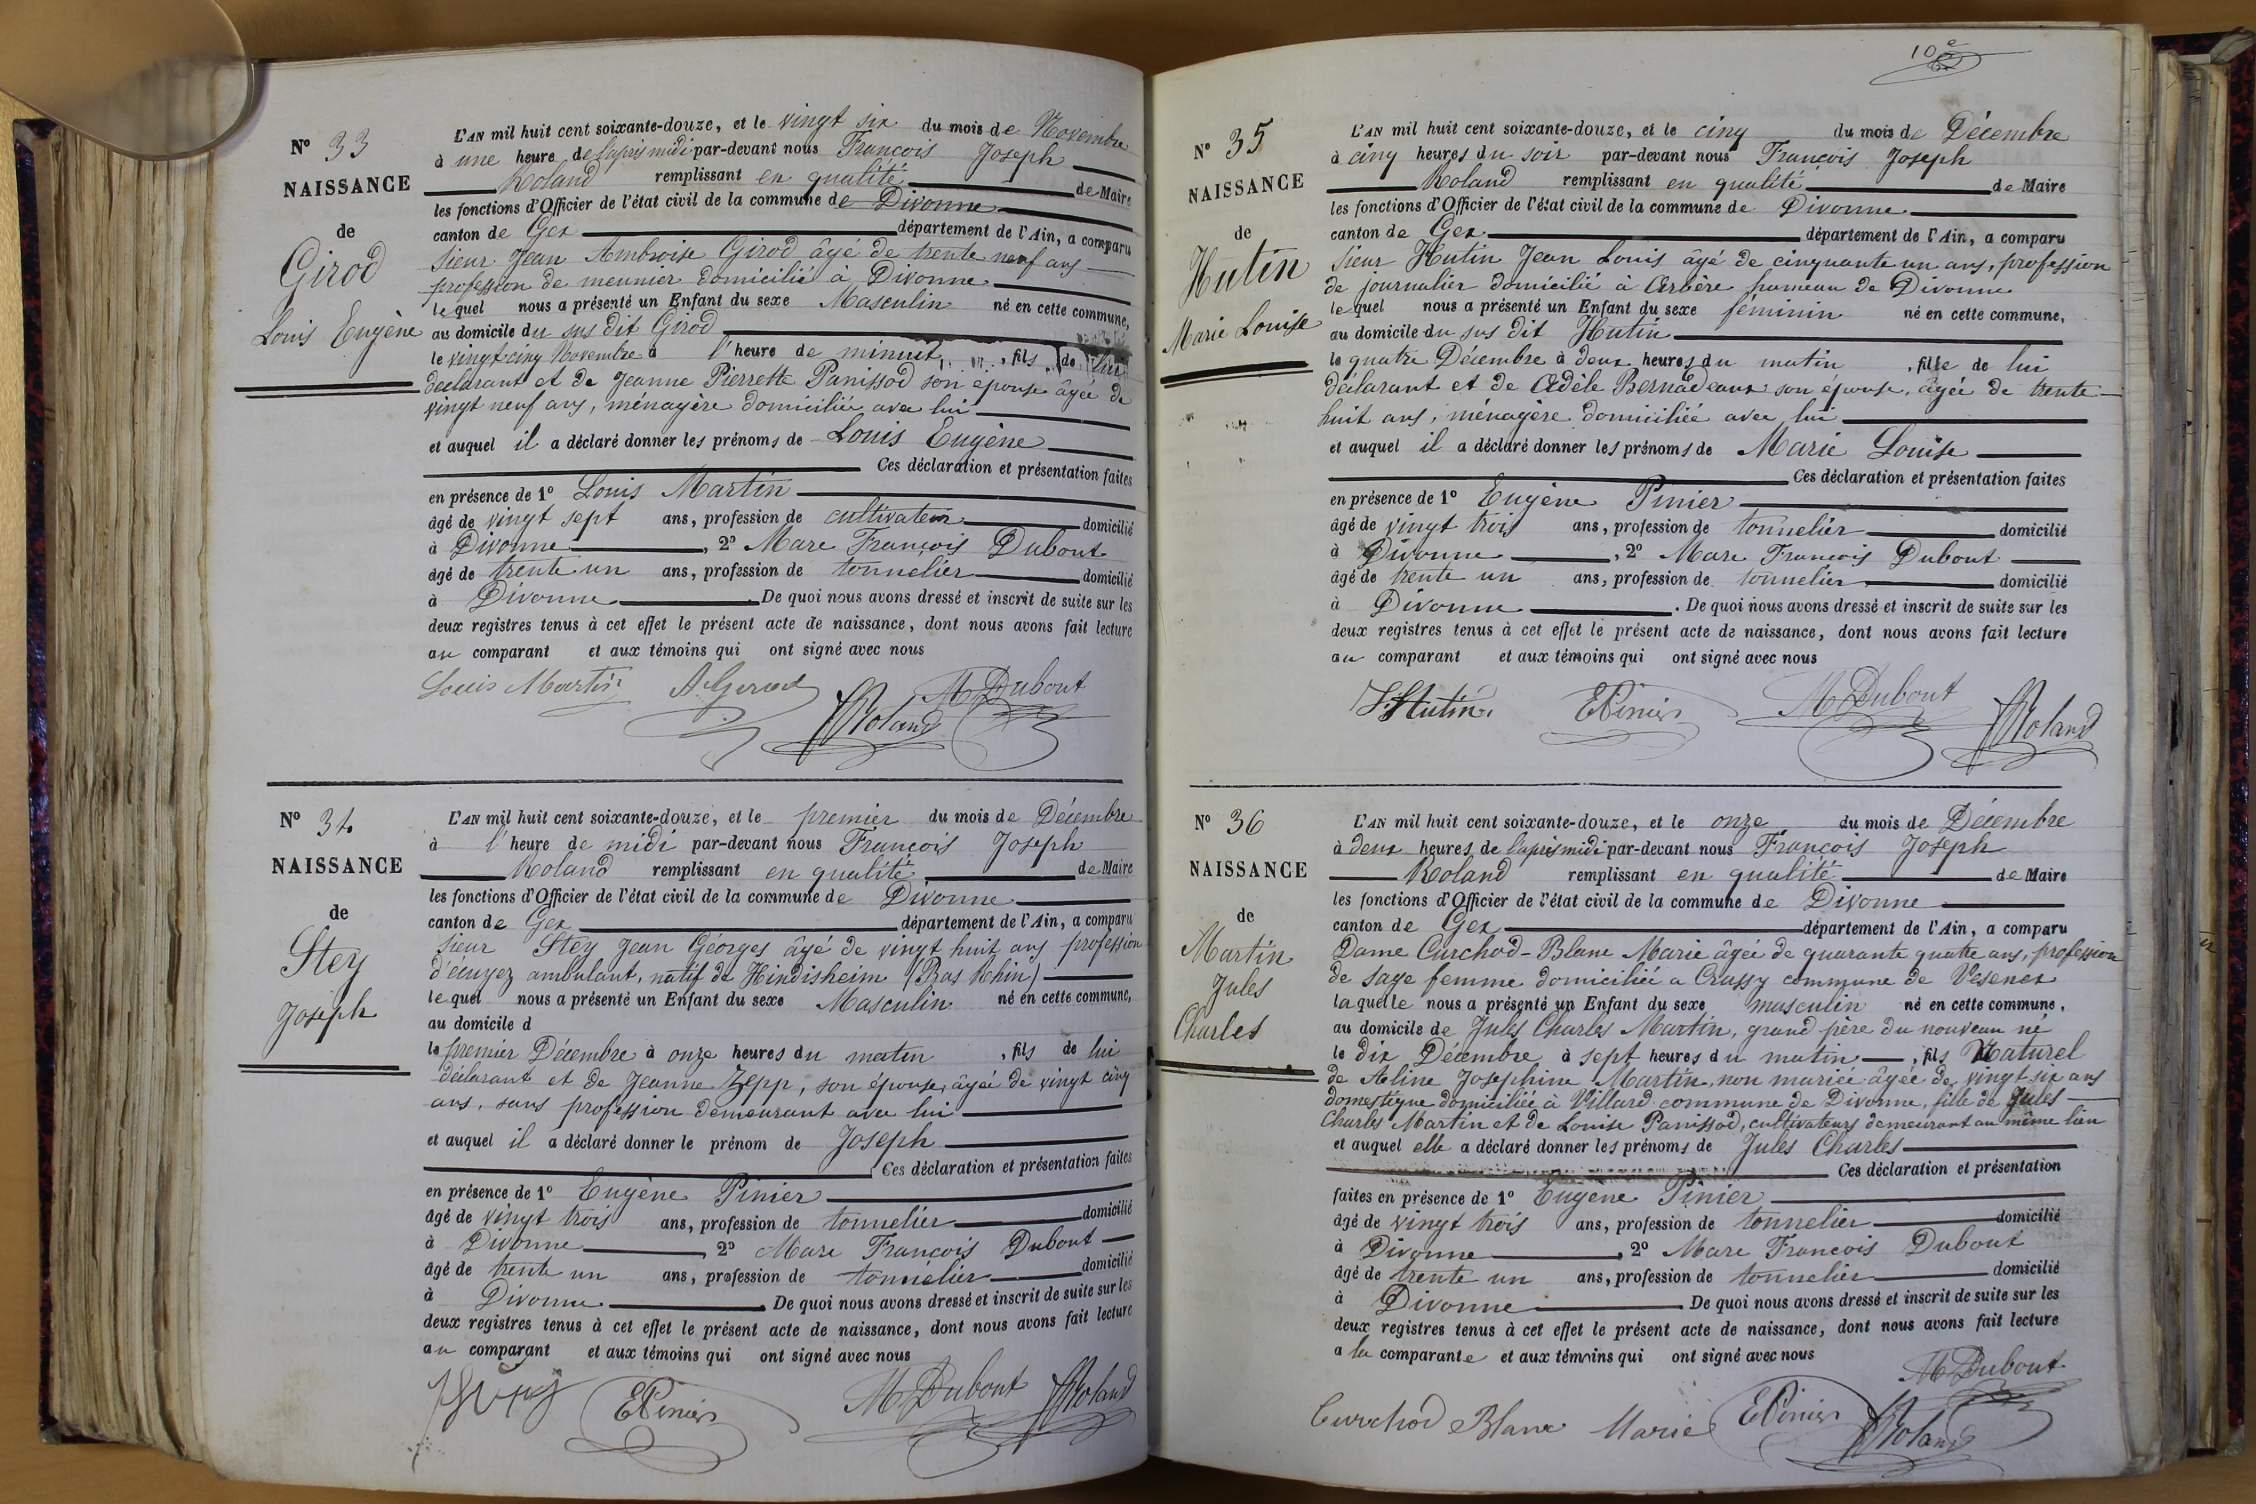 N° 33
NAISSANCE
de
Girod
Louis Eugène
L'AN mil huit cent soixante-douze, et le vingt six du mois de Novembre
à une heure de laprès midi par-devant nous François Joseph
Roland remplissant en qualité de Maire
les fonctions d'Officier de l'état civil de la commune de Divonne
canton de Gex département de l'Ain, a comparu
Sieur Jean Ambroise Girod âgé de trente neuf ans
profession de meunier domicilié à Divonne
lequel nous a présenté un Enfant du sexe Masculin né en cette commune,
au domicile du sus dit Girod
le vingt-cinq Novembre à l'heure de minuit, fils de lui
déclarant et de Jeanne Pierrette Panissod son épouse âgée de
vingt neuf ans, ménagère domiciliée avec lui
et auquel il a déclaré donner les prénoms de Louis Eugène
Ces déclaration et présentation faites
en présence de 1° Louis Martin
âgé de vingt sept ans, profession de cultivateur domicilié
à Divonne, 2° Marc François Dubout
âgé de trente un ans, profession de tonnelier domicilié
à Divonne. De quoi nous avons dressé et inscrit de suite sur les
deux registres tenus à cet effet le présent acte de naissance, dont nous avons fait lecture
au comparant et aux témoins qui ont signé avec nous
Louis Martin A. Girod M Dubout
Roland
N° 34
NAISSANCE
de
Stey
Joseph
L'AN mil huit cent soixante-douze, et le premier du mois de Décembre
à l'heure de midi par-devant nous François Joseph
Roland remplissant en qualité de Maire
les fonctions d'Officier de l'état civil de la commune de Divonne
canton de Gex département de l'Ain, a comparu
Sieur Stey Jean Géorges âgé de vingt huit ans profession
d'écuyez ambulant, natif de Hindisheim (Bas Rhin)
lequel nous a présenté un Enfant du sexe Masculin né en cette commune,
au domicile d
le premier Décembre à onze heures du matin, fils de lui
déclarant et de Jeanne Zepp, son épouse, âgée de vingt cinq
ans, sans profession demeurant avec lui
et auquel il a déclaré donner le prénom de Joseph
Ces déclaration et présentation faites
en présence de 1° Eugène Pinier
âgé de vingt trois ans, profession de tonnelier domicilié
à Divonne, 2° Marc François Dubout
âgé de trente un ans, profession de tonnelier domicilié
à Divonne. De quoi nous avons dressé et inscrit de suite sur les
deux registres tenus à cet effet le présent acte de naissance, dont nous avons fait lecture
au comparant et aux témoins qui ont signé avec nous
EPinier M Dubout Roland
10e
N° 35
NAISSANCE
de
Hutin
Marie Louise
L'AN mil huit cent soixante-douze, et le cinq du mois de Décembre
à cinq heures du soir par-devant nous François Joseph
Roland remplissant en qualité de Maire
les fonctions d'Officier de l'état civil de la commune de Divonne
canton de Gex département de l'Ain, a comparu
Sieur Hutin Jean Louis âgé de cinquante un ans, profession
de journalier domicilié à Arbère hameau de Divonne
lequel nous a présenté un Enfant du sexe féminin né en cette commune,
au domicile du sus dit Hutin
le quatre Décembre à deux heures du matin, fille de lui
déclarant et de Adèle Bernadeaux son épouse, âgée de trente
huit ans, ménagère domiciliée avec lui
et auquel il a déclaré donner les prénoms de Marie Louise
Ces déclaration et présentation faites
en présence de 1° Eugène Pinier
âgé de vingt trois ans, profession de tonnelier domicilié
à Divonne, 2° Marc François Dubout
âgé de trente un ans, profession de tonnelier domicilié
à Divonne. De quoi nous avons dressé et inscrit de suite sur les
deux registres tenus à cet effet le présent acte de naissance, dont nous avons fait lecture
au comparant et aux témoins qui ont signé avec nous
Hutin EPinier M Dubout Roland
N° 36
NAISSANCE
de
Martin
Jules
Charles
L'AN mil huit cent soixante-douze, et le onze du mois de Décembre
à deux heures de laprès midi par-devant nous François Joseph
Roland remplissant en qualité de Maire
les fonctions d'Officier de l'état civil de la commune de Divonne
canton de Gex département de l'Ain, a comparu
Dame Curchod-Blanc Marie âgée de quarante quatre ans, profession
de sage femme domiciliée a Crassy commune de Vesenex
laquelle nous a présenté un Enfant du sexe masculin né en cette commune,
au domicile de Jules Charles Martin, grand père du nouveau né
le dix Décembre à sept heures du matin, fils Naturel
de Aline Josephine Martin, non mariée âgée de vingt six ans
domestique domiciliée à Villard commune de Divonne, fille de Jules
Charles Martin et de Louise Panissod, cultivateurs demeurant au même lieu
et auquel elle a déclaré donner les prénoms de Jules Charles
Ces déclaration et présentation
faites en présence de 1° Eugène Pinier
âgé de vingt trois ans, profession de tonnelier domicilié
à Divonne, 2° Marc François Dubout
âgé de trente un ans, profession de tonnelier domicilié
à Divonne. De quoi nous avons dressé et inscrit de suite sur les
deux registres tenus à cet effet le présent acte de naissance, dont nous avons fait lecture
a la comparante et aux témoins qui ont signé avec nous
M Dubout
Curchod Blanc Marie EPinier Roland